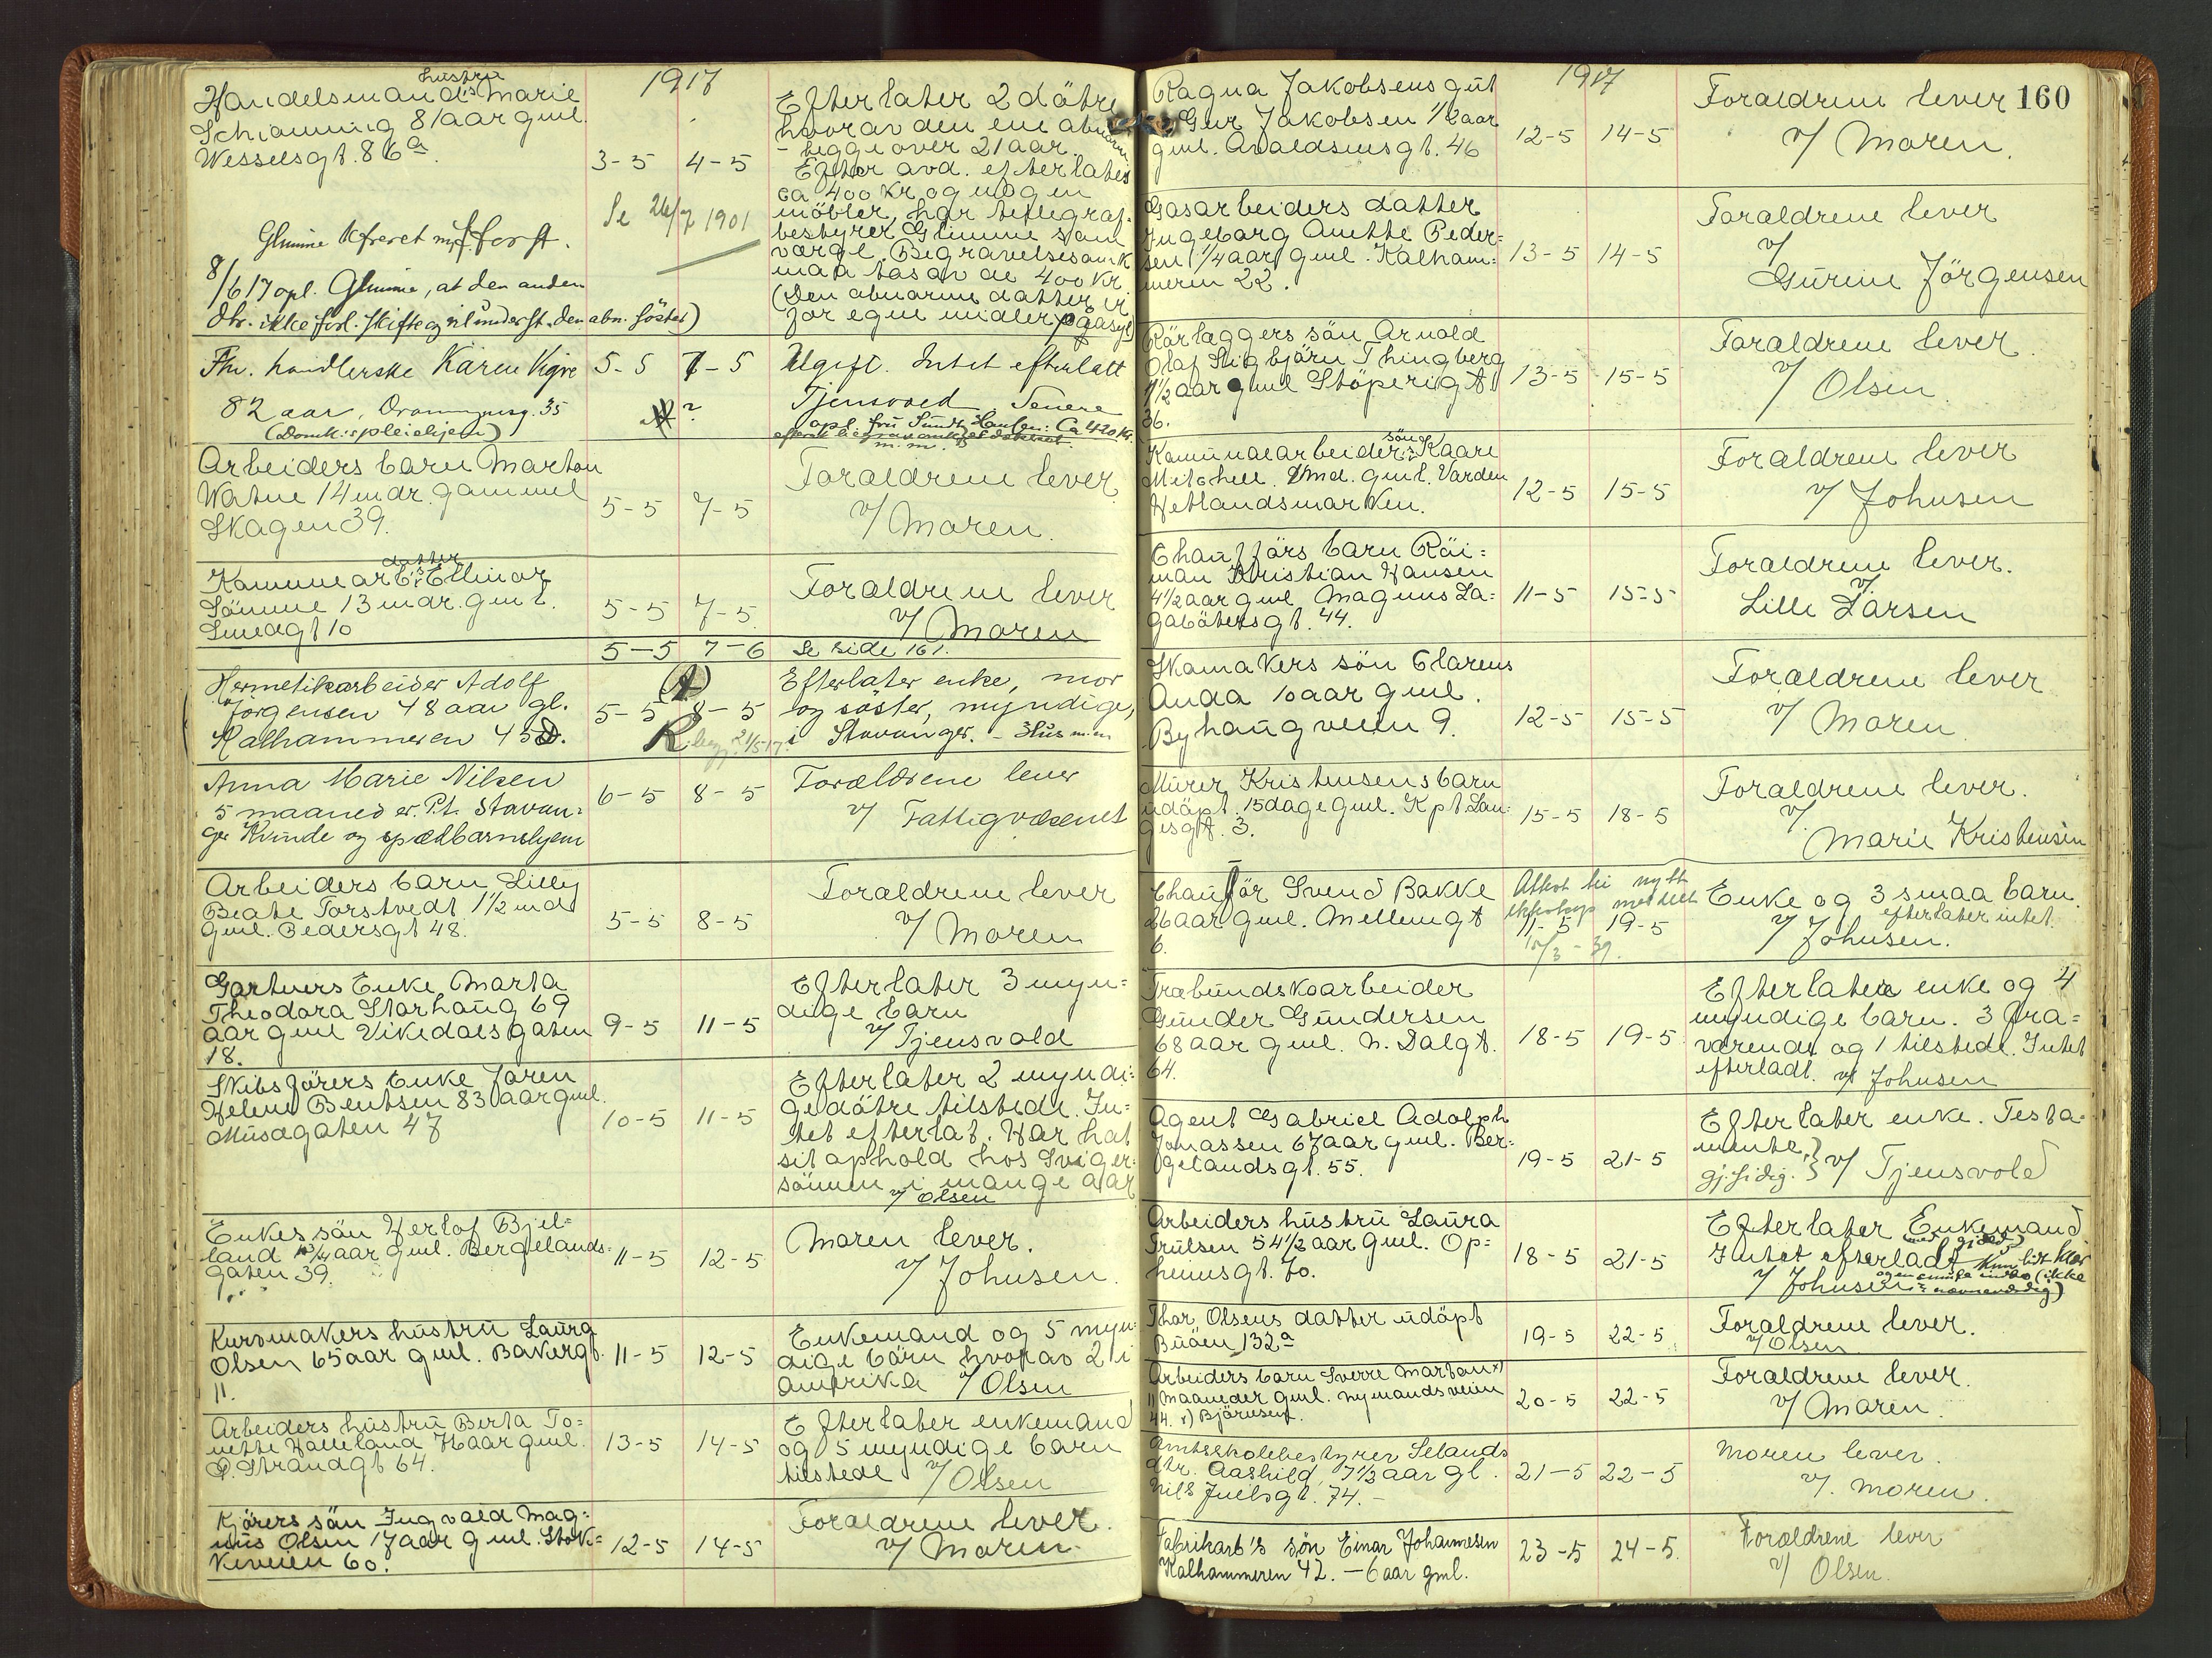 1917
hustru
Handelsmand's Marie
Schiönning 81 aar gml.
Wesselsgt. 86a.
3-5 4-5
Se 26/7 1901
Efterlater 2 dötre
hvorav den ene abnorm
- begge over 21 aar.
Efter avd. efterlates
ca 400 Kr og nogen
möbler, har tellegraf-
bestyrer Glimme som
værge. Begravelsesomk
maa tas av de 400 Kr
(Den abnorme datter er
for egne midler på asyl)
8/6 17 opl. Glimme, at den anden
dtr. ikke forl. skifte og vil underst. den abn. söster)
Fhv. handlerske Karen Vigre
82 aar, Dronningensg. 35
(Domk.s pleiehjem)
5-5 7-5
?
Ugift. Intet efterlatt
Tjensvold. Senere
opl. fru Sundt Hansen: Ca 420 Kr.
m.m.
Arbeiders barn Marton
Watne 14 mdr. gammel
Skagen 39.
5-5 7-5
Foraldrene lever
v/ Moren.
datter
Kommunearb.'s Ellinor
Sömme 13 mdr. gml.
Smedgt 10
5-5 7-5
Foraldrene lever
v/ Moren
5-5 7-6 Se side 161.
Hermetikarbeider Adolf
Jörgensen 48 aar gl.
Kalhammeren 45 D.
5-5 8-5
Efterlater enke, mor
og söster, myndige,
i Stavanger. - Hus m.m
Anna Marie Nilsen
5 maaneder. P.t. Stavan-
ger Kvinde og spædbarnshjem
6-5 8-5
Forældrene lever
v/ Fattigvæsenet
Arbeiders barn Lilly
Beate Torstvedt 1 1/2 md
gml. Pedersgt 48.
5-5 8-5
Foraldrene lever
v/ Moren
Gartners Enke Marta
Theodora Storhaug 69
aar gml Vikedalsgaten
18.
9-5 11-5
Efterlater 3 myn-
dige barn
v/ Tjensvold
Skibsförers Enke Joren
Helene Bentsen 83 aar gml.
Musegaten 47
10-5 11-5
Efterlater 2 myndi-
ge dötre tilstede. In-
tet efterlat. Har hat
sit ophold hos Sviger-
sönnen i mange aar
v/ Olsen
Enkes sön Herlof Bjel-
land 3/4 aar gml. Bergelands-
gaten 39.
11-5 12-5
Moren lever.
v/ Johnsen.
Kurvmakers hustru Laura
Olsen 65 aar gml. Bakergt.
11.
11-5 12-5
Enkemand og 5 myn-
dige barn hvorav 2 i
amerika v/ Olsen
Arbeiders hustru Berta To-
nette Halleland 71 aar gml.
Ö. Strandgt 64.
13-5 14-5
Efterlater enkemand
og 5 myndige barn
tilstede v/ Olsen
Kjörers sön Ingvald Mag-
nus Olsen 17 aar gml. Stok-
keveien 60.
12-5 14-5
Foraldrene lever.
v/ Moren
160
1917
Ragna Jakobsens gut
Geir Jakobsen 1/2 aar
gml. Avaldsensgt. 46
12-5 14-5
Foraldrene lever
v/ Moren.
Gasarbeiders datter
Ingeborg Anette Peder-
sen 1/4 aar gml. Kalham-
meren 22.
13-5 14-5
Foraldrene lever
v/
Gurine Jörgensen
Rörlaggers sön Arnold
Olaf Sigbjörn Thingberg
1 1/2 aar gml Stöperigt
36.
13-5 15-5
Foraldrene lever
v/ Olsen
sön
Komunalarbeiders Kaare
Mitchell. 1 md. gml. Varden
Hetlandsmarken.
12-5 15-5
Foraldrene lever
v/ Johnsen
Chaufförs barn Röi-
man Kristian Hansen
4 1/2 aar gml Magnus La-
gabötersgt. 44.
11-5 15-5
Foraldrene lever.
v/
Lille Larsen
Skomakers sön Clarens
Anda 10 aar gml.
Byhaugveien 9.
12-5 15-5
Foraldrene lever
v/ Moren
Murer Kristensens barn
udöpt. 15 dage gml. Kpt Lan-
gesgt. 3.
15-5 18-5
Foraldrene lever.
v/
Marie Kristensen
Chauför Svend Bakke
26 aar gml. Mellemgt
6.
Attest til nytt
meddelt
11-5 19-5
15/3 - 39.
Enke og 3 smaa barn.
efterlater intet.
v/ Johnsen.
Træbundskoarbeider
Gunder Gundersen
68 aar gml. N. Dalgt.
64.
18-5 19-5
Efterlater enke og 4
myndige barn. 3 fra-
varende og 1 tilstede. Intet
efterladt. v/ Johnsen
Agent Gabriel Adolph
Jonassen 67 aar gml. Ber-
gelandsgt. 55.
19-5 21-5
Efterlater enke. Testa-
mente,
gj.sidig. } v/ Tjensvold
Arbeiders hustru Laura
Trulsen 54 1/2 aar gml. Op-
heimsgt. 70.
18-5 21-5
Efterlater Enkemand
Intet efterladt Kun litt klær
v/ Johnsen
Thor Olsens datter udöpt
Buöen 132a
19-5 22-5
Foraldrene lever.
v/ Olsen
Arbeiders barn Sverre Marton x)
11 maaneder gml. Nymandsveien
44. x) Björnsen.
20-5 22-5
Foraldrene lever.
v/ Moren.
Amtsskolebestyrer Selands
dtr. Aashild, 7 1/2 aar gl.
Nils Juelsgt. 74.-
21-5 22-5
Moren lever.
v/ moren.
Fabrikarb's sön Einar Johannesen
Kalhammeren 42. - 6 aar gml.
23-5 24-5.
Forældrene lever
v/ Olsen.